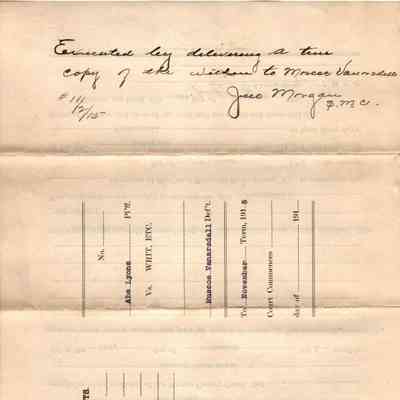 Executed by delivering a true
copy of the within to Moscoe Vanarsdall
Jeco Morgan
F.M.C.
#111
12/15
No.
Abe Lyons Plff.
Vs. WHIT, ETC.
Muscoe Vanarsdall Deft.
To November Term, 1915
Court Commences
day of 191
TS.